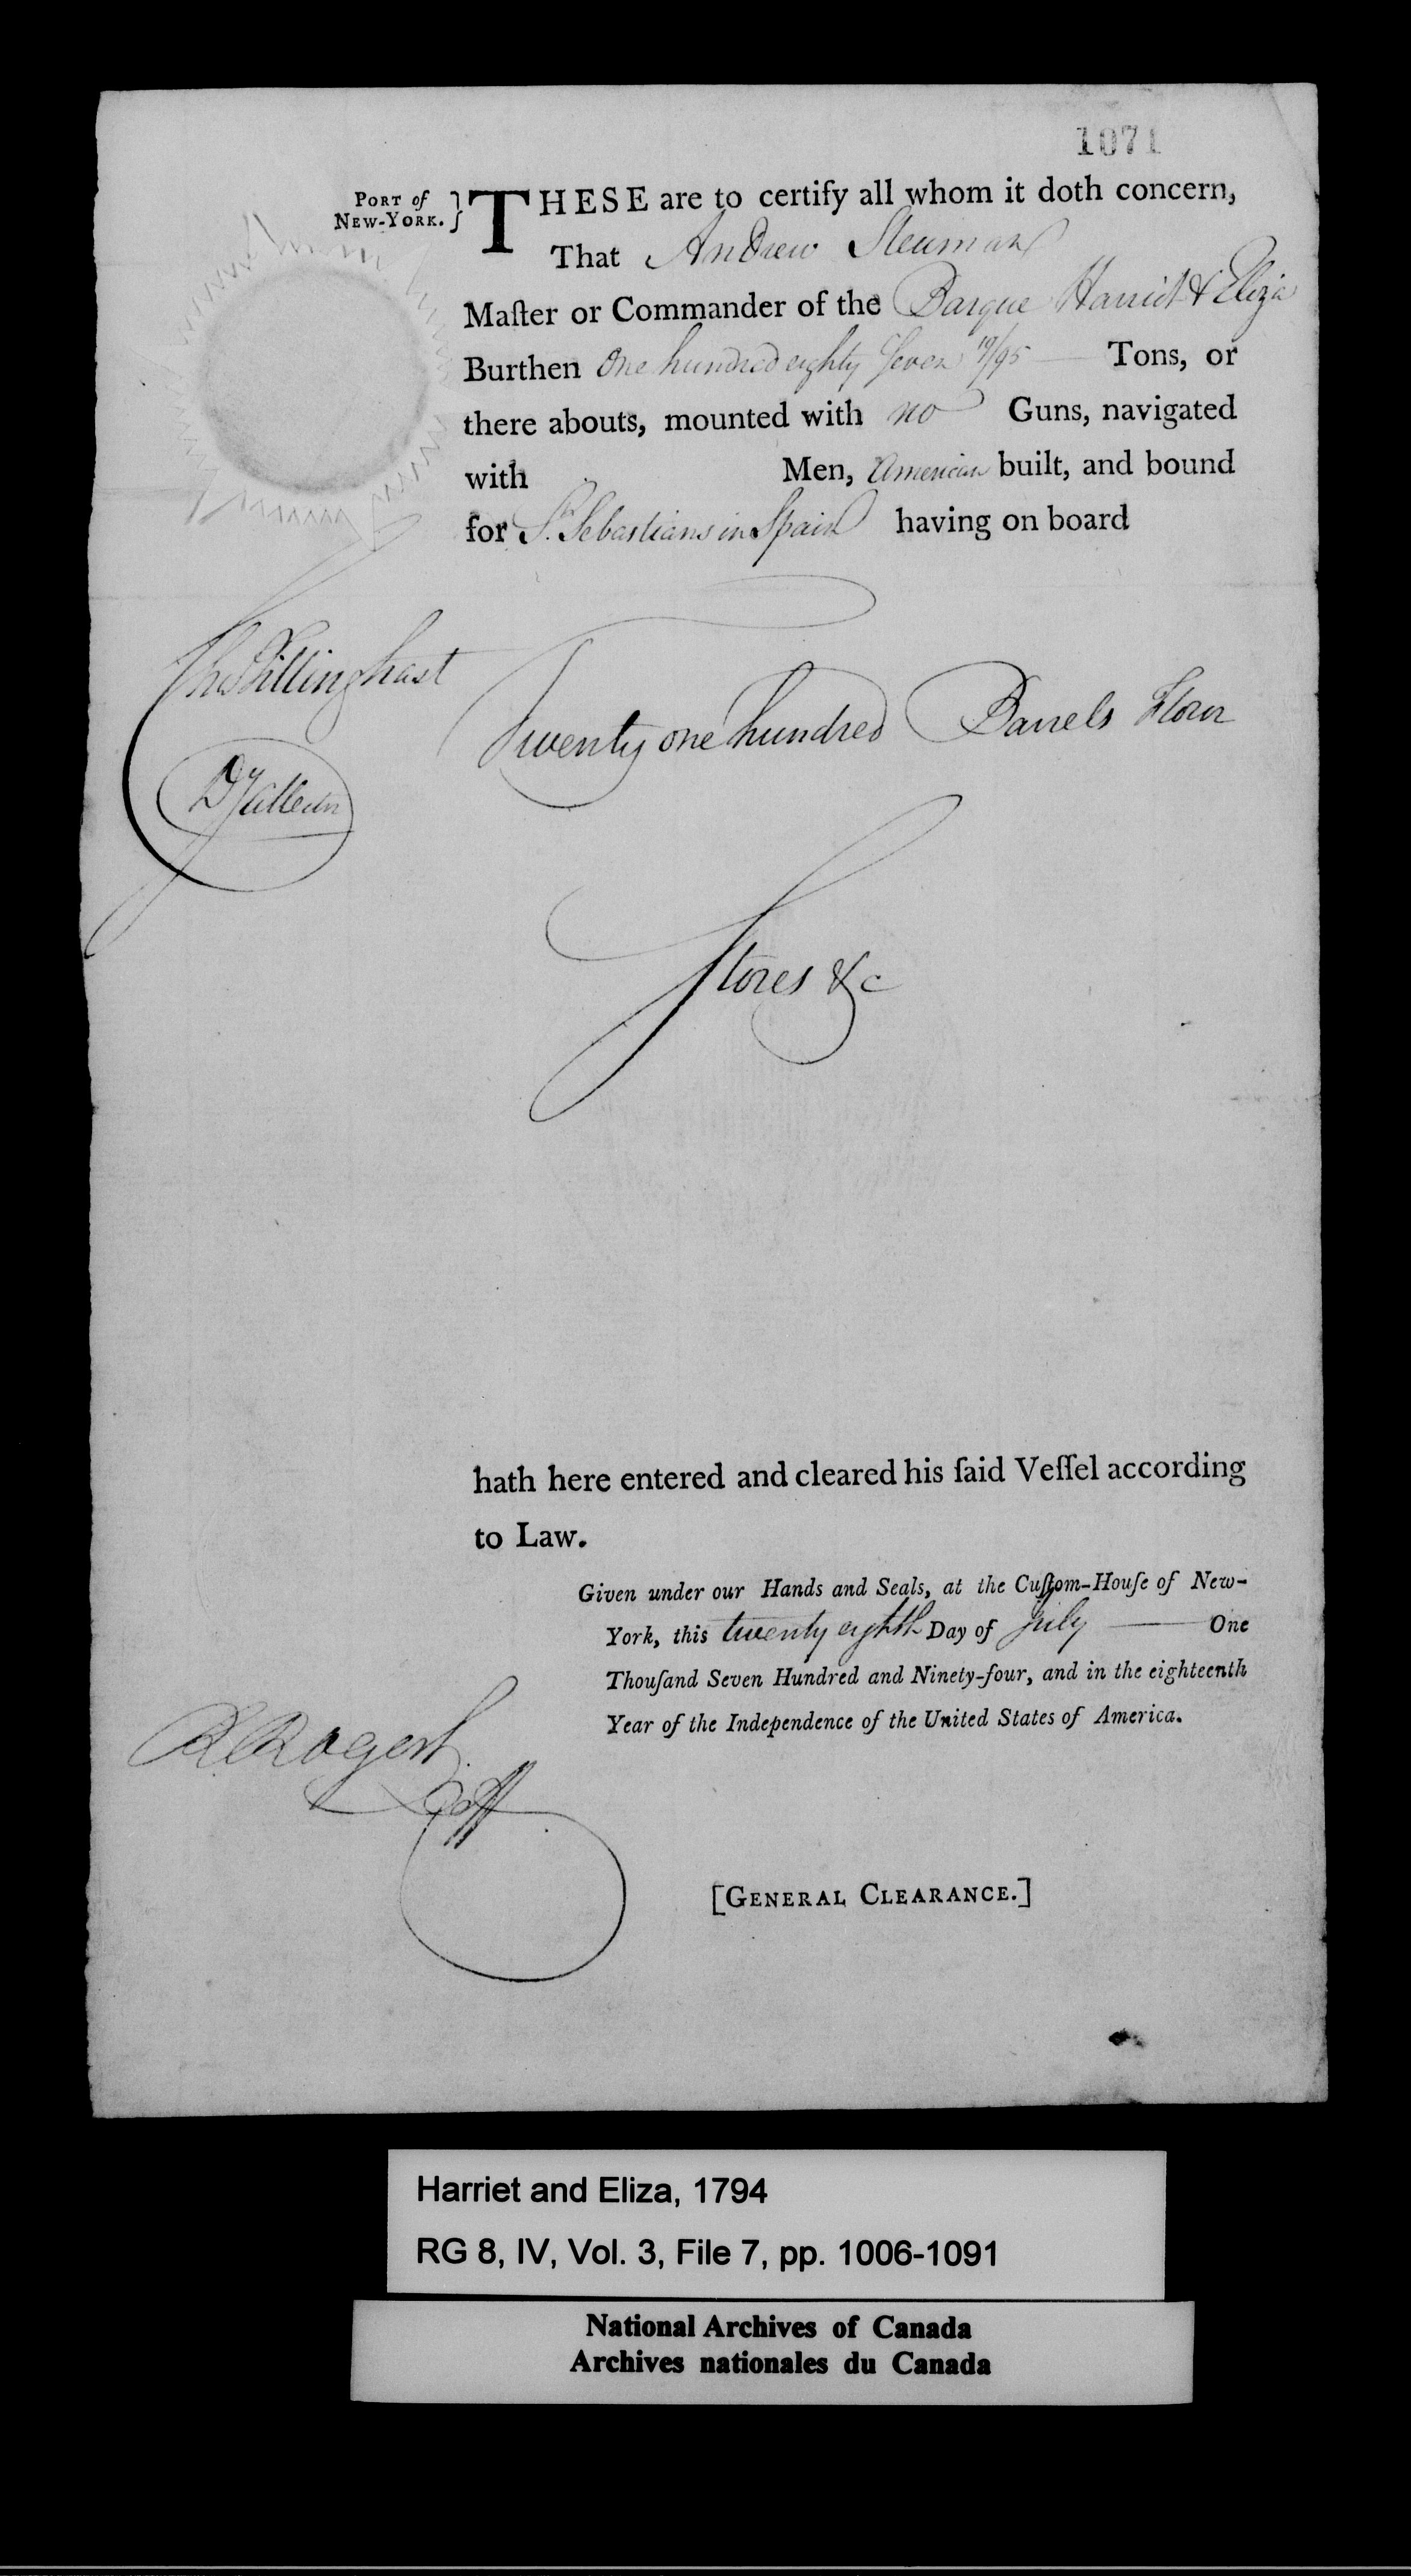 1071
PORT of
NEW-YORK. }
THESE are to certify all whom it doth concern,
That Andrew
Maſter or Commander of the Barque Harriet & Eliza
Burthen One hundred eighty Seven 19/95 Tons, or
there abouts, mounted with no Guns, navigated
with Men, American built, and bound
for St. Sebastians in Spain having on board
Tillinghast
Twenty one hundred Barrels Flour
Stores &c
hath here entered and cleared his ſaid Veſſel according
to Law.
Given under our Hands and Seals, at the Cuſtom-Houſe of New-
York, this twenty eighth Day of July One
Thouſand Seven Hundred and Ninety-four, and in the eighteenth
Year of the Independence of the United States of America.
[GENERAL CLEARANCE.]
Harriet and Eliza, 1794
RG 8, IV, Vol. 3, File 7, pp. 1006-1091
National Archives of Canada
Archives nationales du Canada